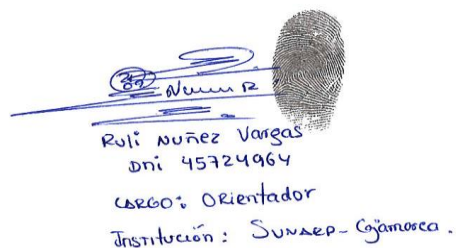 Ruli Nuñez Vargas
DNI 45724964
CARGO: ORientador
Institución: SUNARP - Cajamarca.